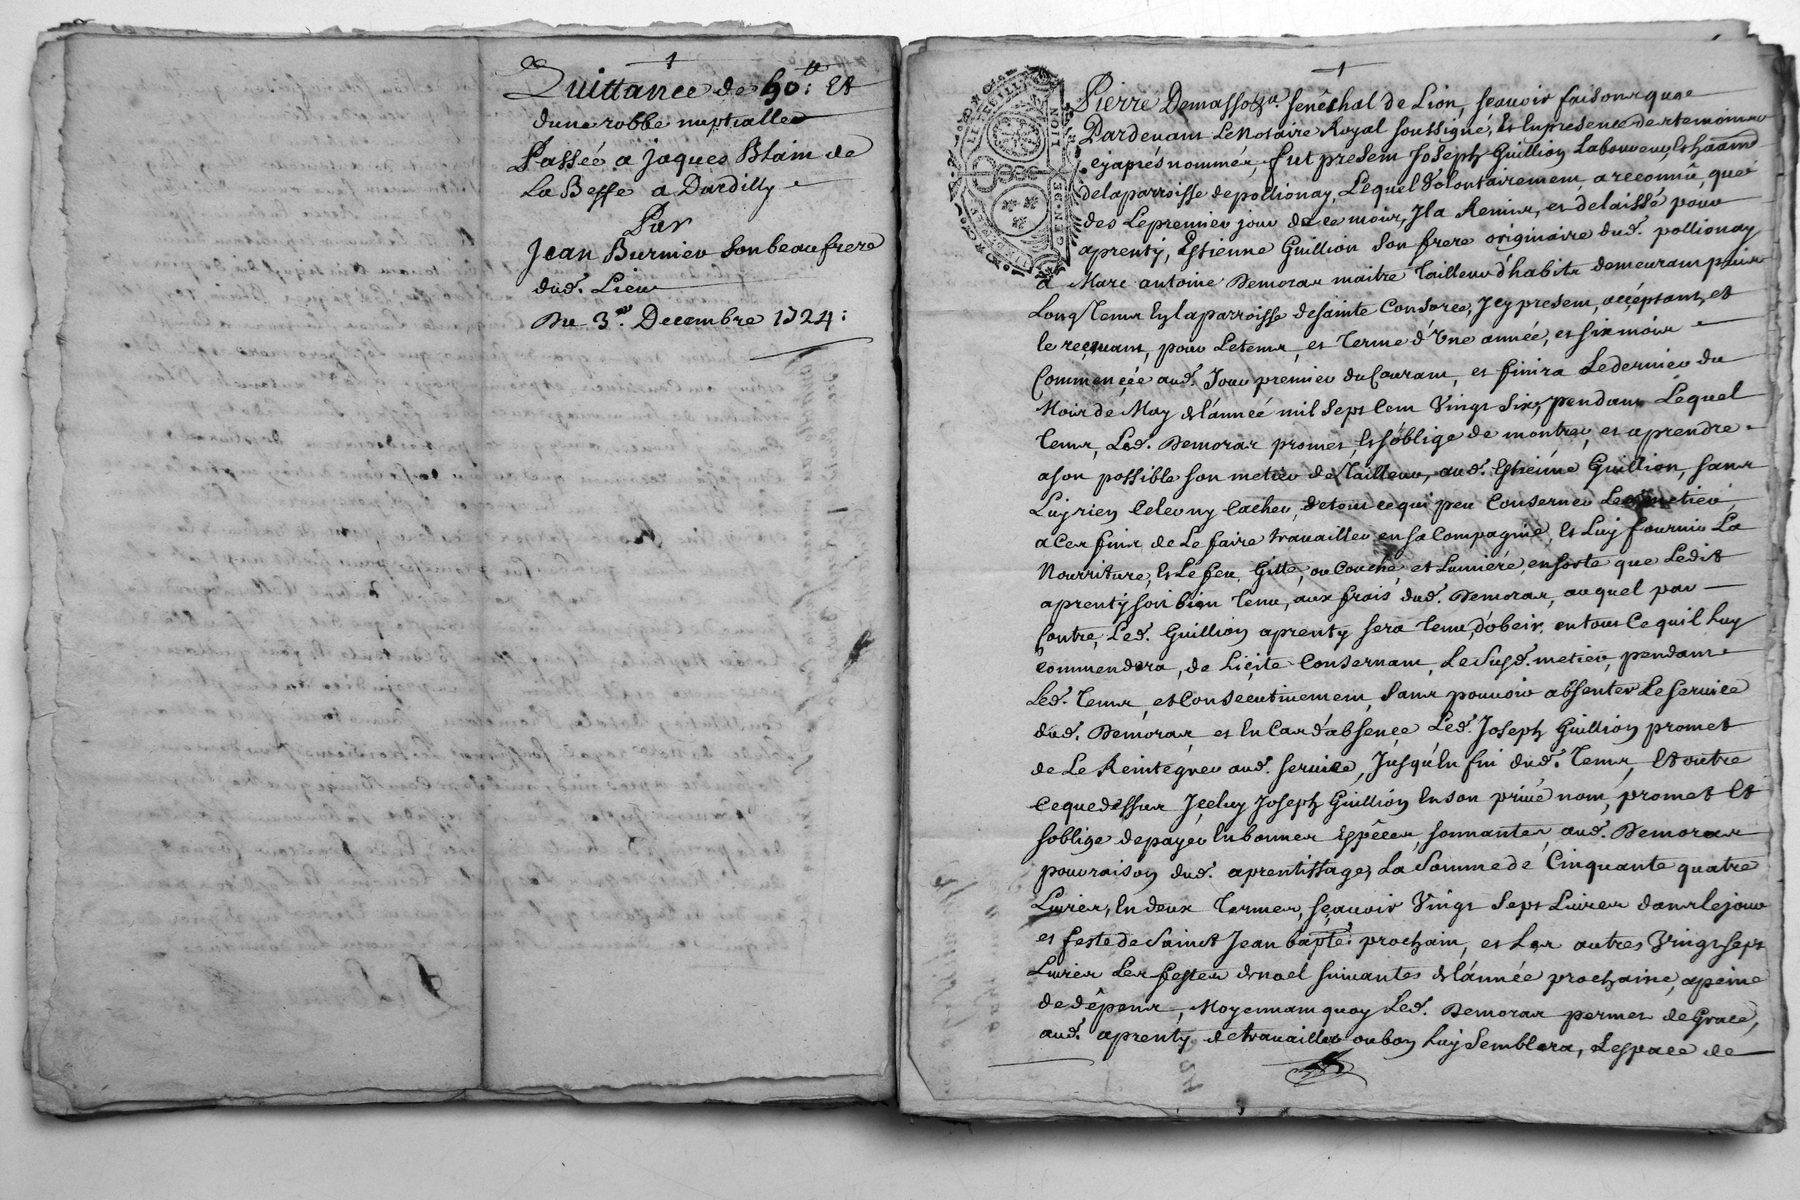 Quittance de 50:tt Et
dune robbe nuptialle
Passée a jaques Blain de
La Besse a Dardilly
Par
Jean Burnieu son beaufrere
dud. Lieu
Du 3.e Decembre 1724:
Pierre Demasso &a. senéchal de Lion, scavoir faisons que
Pardevant Le Notaire Royal soussigné, Et En presence des temoins
cy aprés nommés, fut present Joseph Guillion Laboureur,
de la parroisse de pollionay, Lequel volontairement, a reconnû, que
des Le premier jour de ce mois, Il a Remis, et delaissé pour
aprenty, Estienne Guillion son frere originaire dud. pollionay
a Marc antoine Demoras maitre Tailleur d'habits demeurant
Long Tems En la parroisse de sainte Consorce, Icy present, acceptant, et
le recevant, pour Le tems, et Terme d'Une année, et six mois
Commencée aud. Jour premier du Courant, et finira Le dernier du
Mois de May de l'année mil sept Cent Vingt six, pendant Lequel
Tems, Led. Demoras promet, Et s'oblige de montrer, et aprendre
a son possible son metier de Tailleur, aud. Estienne Guillion, sans
Luy rien Celer ny Cacher, de tout ce qui peu Conserner Led. metier,
a Ces fins de Le faire travailler en sa Compagnie, Et Luy fournir La
Nourriture, Et Le feu, Gitte, ou Couche, et Lumiére, en sorte que Ledit
aprenty soit bien Tenu, aux frais dud. Demoras, auquel par
Contre, Led. Guillion aprenty sera Tenu, d'obeir, en tous Ce quil Luy
commendera, de Liçite Consernant, Le susd. metier, pendant
Led. Tems, et Consecutivement, sans pouvoir absenter Le service
dud. Demoras, et En Cas d'absence Led. Joseph Guillion promet
de Le Reintégrer aud. service, Jusqu'En fin dud. Tems, Et outre
Ce que dessus Jceluy Joseph Guillion En son privé nom, promet Et
soblige de payer En bonnes Espêces, sonnantes, aud. Demoras
pour raison dud. aprentissage, La somme de Cinquante quatre
Livres, En deux Termes, sçavoir Vingt sept Livres dans le jour
et feste de Sainct Jean bapte. prochain, et Les autres Vingt sept
Livres Les festes de noel suivantes de l'année prochaine, apeine
de dêpens, Moyennant quoy Led. Demoras permet de Grace,
aud. aprenty de travailler ou bon Luy Semblera, Lespace de